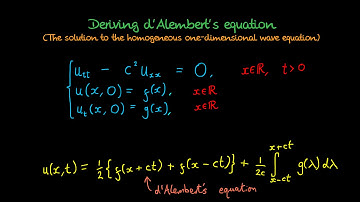 Deriving d'Alembert's equation
(The solution to the homogeneous one-dimensional wave equation)
u_tt - c²u_xx = 0, x∈ℝ, t>0
u(x,0) = f(x), x∈ℝ
u_t(x,0) = g(x), x∈ℝ
u(x,t) = 1/2{f(x+ct) + f(x-ct)} + 1/2c ∫_{x-ct}^{x+ct} g(λ)dλ
d'Alembert's equation